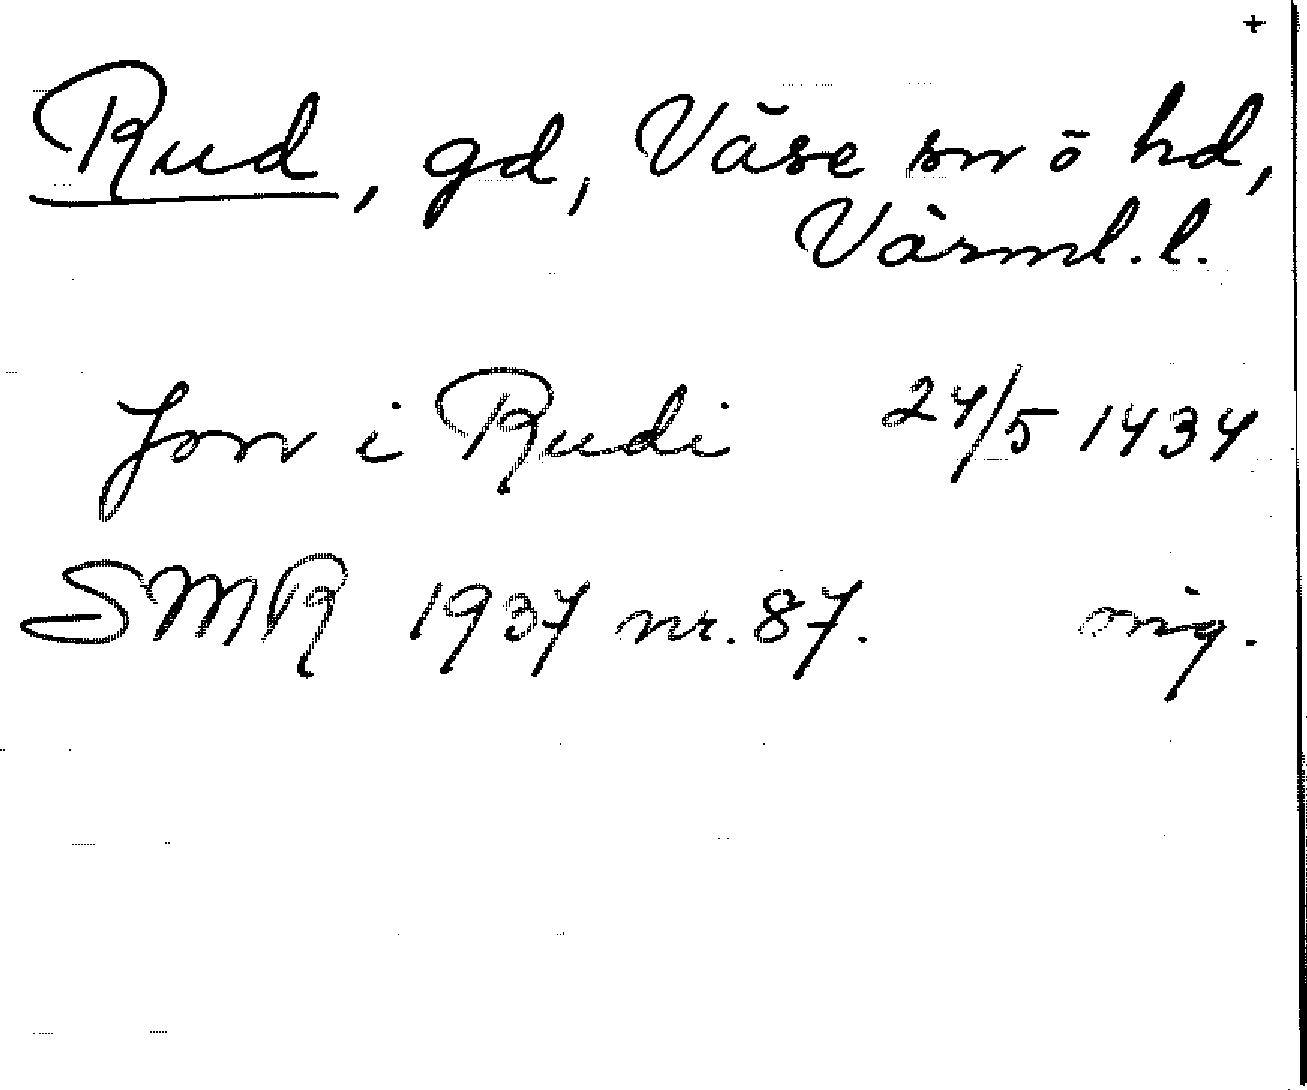 +
Rud, gd, Väse sn o hd,
Värml. l.
Jon i Rudi 24/5 1434
SMR 1937 nr. 87. orig.